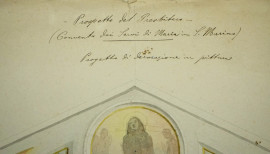 - Prospetto del Presbitero -
(Convento dei Servi di Maria in S. Marino)
Progetto di decorazione in pittura